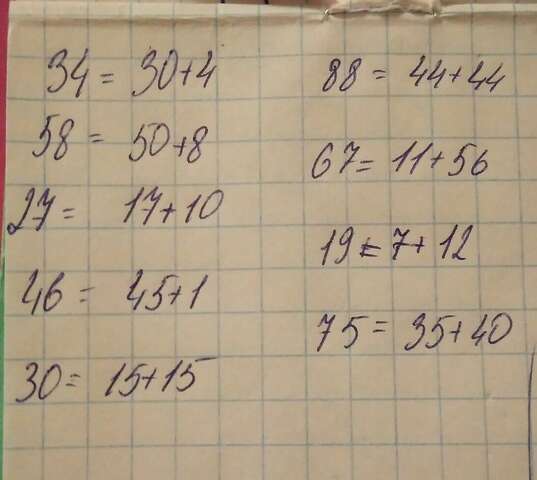 34 = 30+4
58 = 50+8
27 = 17+10
46 = 45+1
30 = 15+15
88 = 44+44
67 = 11+56
19 = 7+12
75 = 35+40